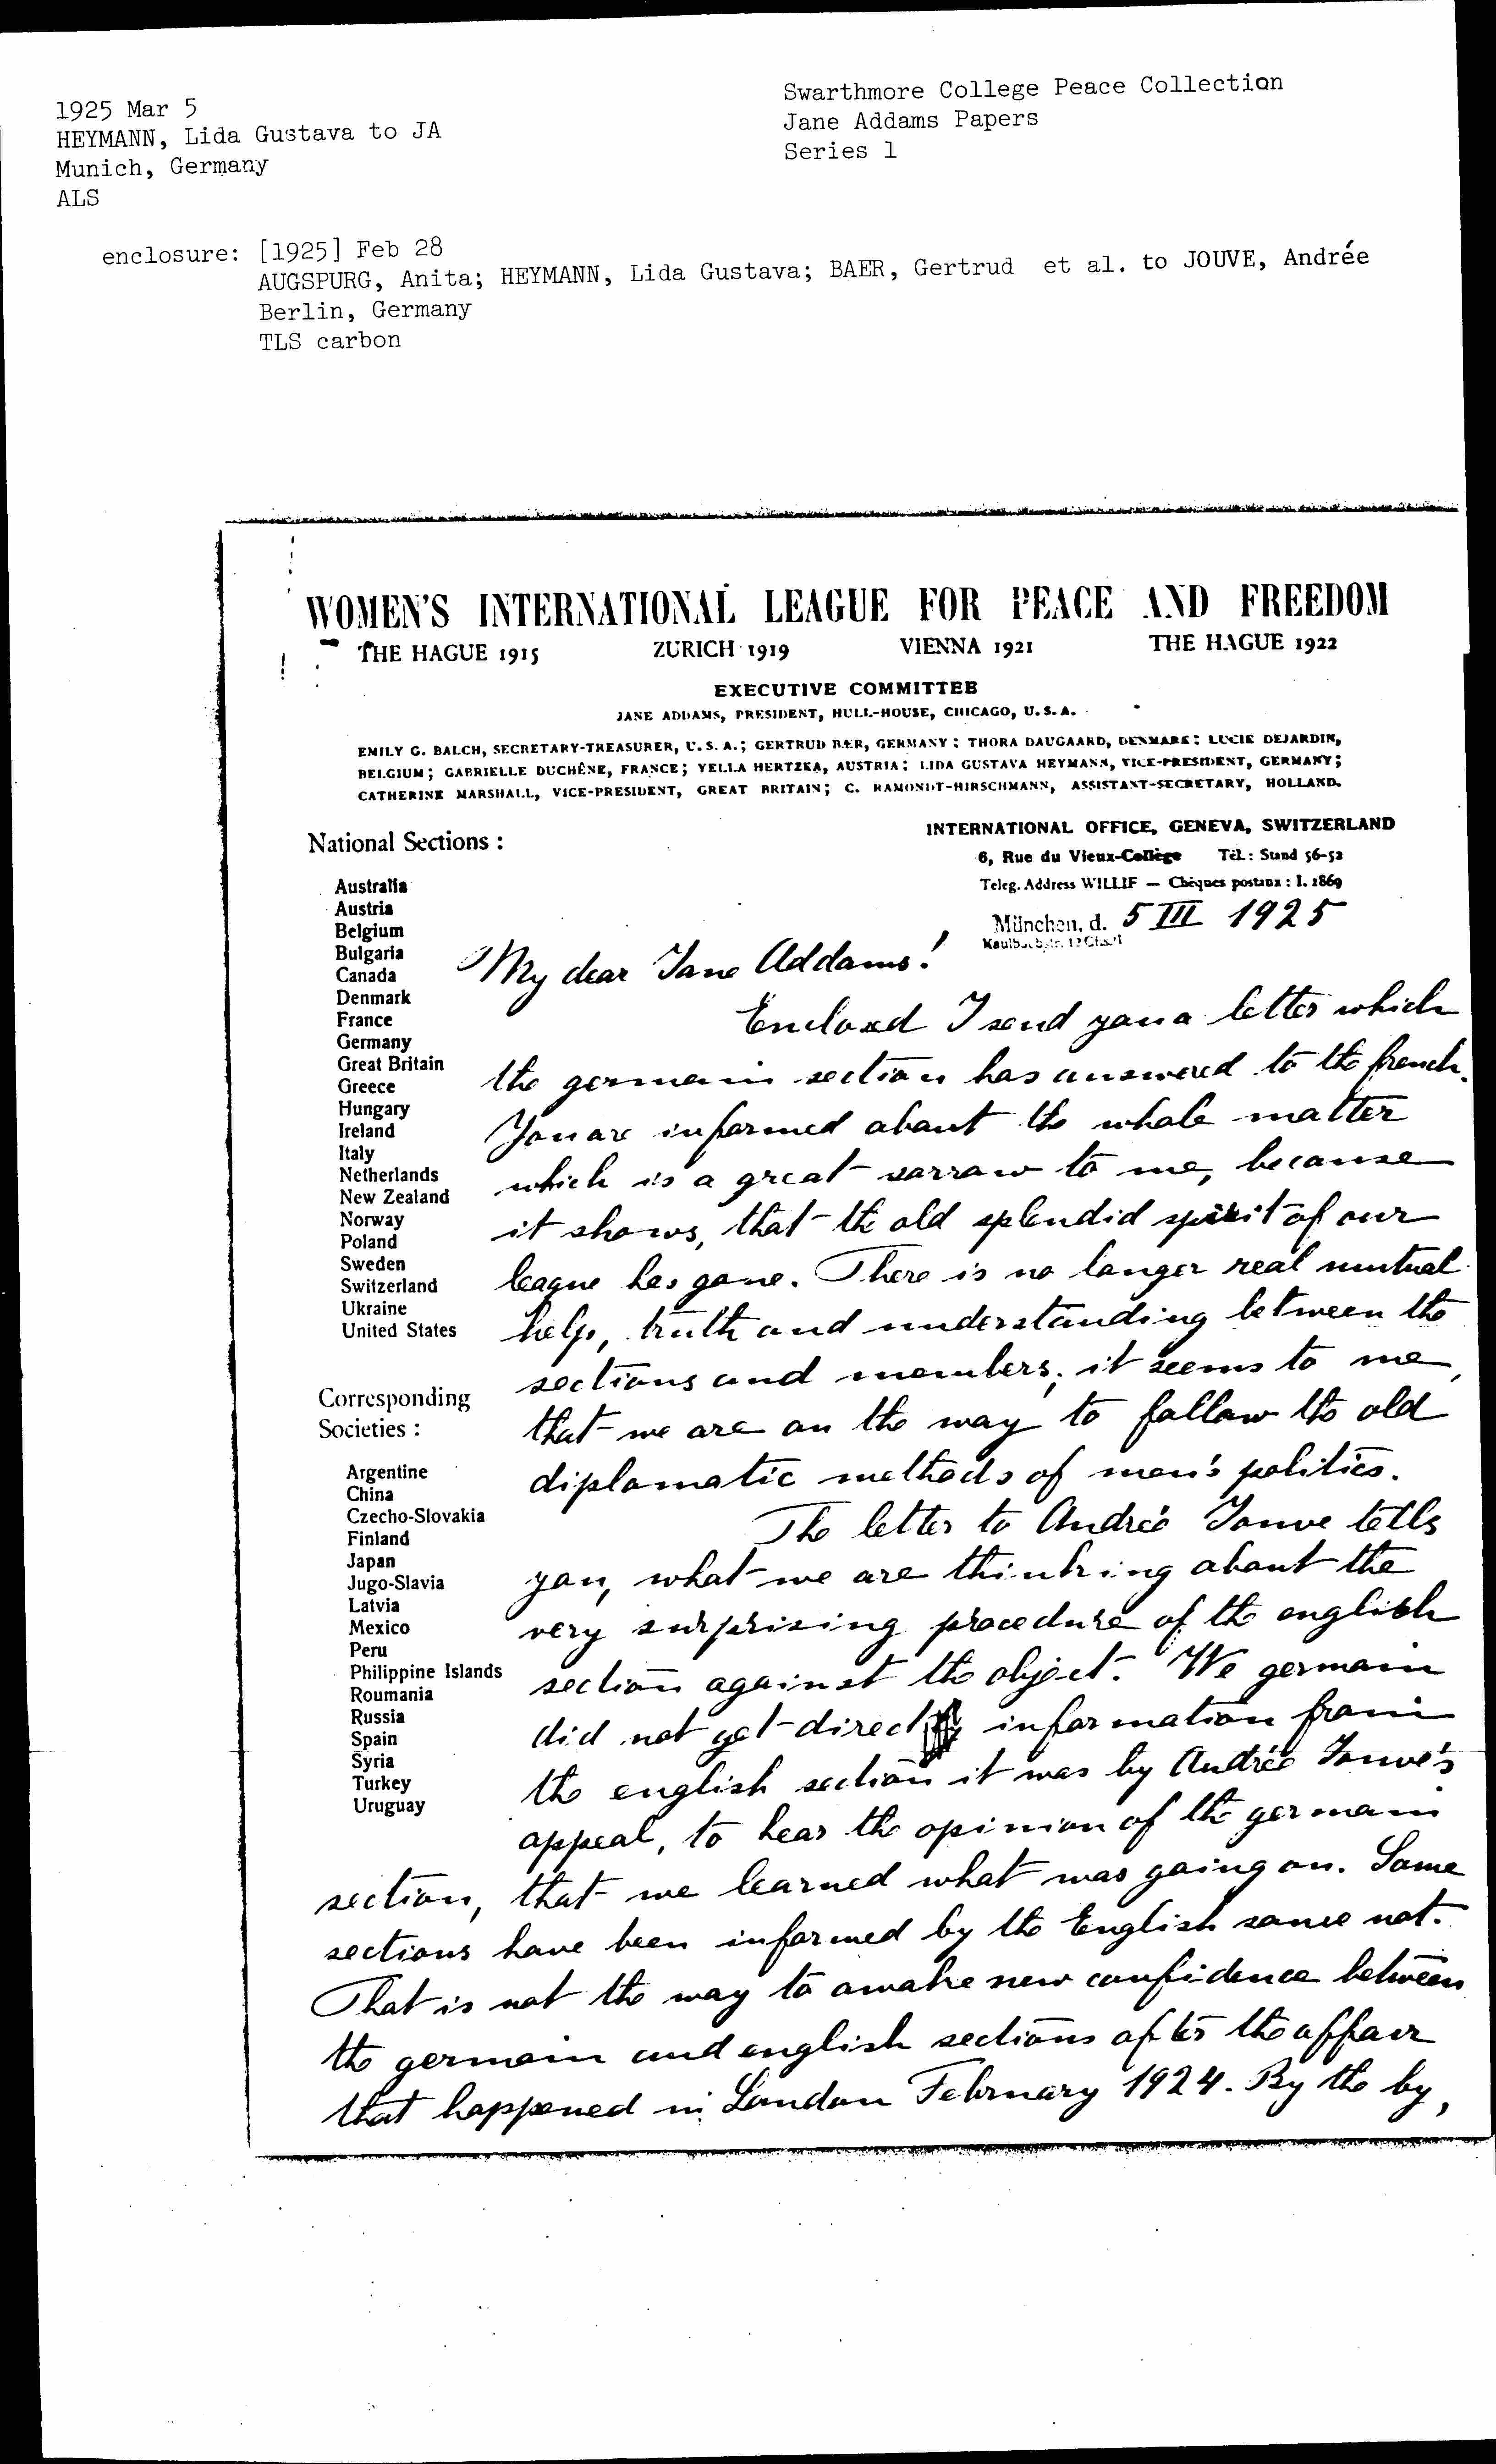 1925 Mar 5
HEYMANN, Lida Gustava to JA
Munich, Germany
ALS
Swarthmore College Peace Collection
Jane Addams Papers
Series 1
enclosure: [1925] Feb 28
AUGSPURG, Anita; HEYMANN, Lida Gustava; BAER, Gertrud et al. to JOUVE, Andrée
Berlin, Germany
TLS carbon
WOMEN'S INTERNATIONAL LEAGUE FOR PEACE AND FREEDOM
THE HAGUE 1915 ZURICH 1919 VIENNA 1921 THE HAGUE 1922
EXECUTIVE COMMITTEE
JANE ADDAMS, PRESIDENT, HULL-HOUSE, CHICAGO, U.S.A.
EMILY G. BALCH, SECRETARY-TREASURER, U.S.A.; GERTRUD BÆR, GERMANY; THORA DAUGAARD, DENMARK; LUCIE DEJARDIN,
BELGIUM; GABRIELLE DUCHÊNE, FRANCE; YELLA HERTZKA, AUSTRIA; LIDA GUSTAVA HEYMANN, VICE-PRESIDENT, GERMANY;
CATHERINE MARSHALL, VICE-PRESIDENT, GREAT BRITAIN; C. RAMONDT-HIRSCHMANN, ASSISTANT-SECRETARY, HOLLAND.
INTERNATIONAL OFFICE, GENEVA, SWITZERLAND
6, Rue du Vieux-Collège Tél.: Stand 56-52
Teleg. Address WILLIF — Chèques postaux: I. 1869
München, d. 5 III 1925
National Sections:
Australia
Austria
Belgium
Bulgaria
Canada
Denmark
France
Germany
Great Britain
Greece
Hungary
Ireland
Italy
Netherlands
New Zealand
Norway
Poland
Sweden
Switzerland
Ukraine
United States
Corresponding
Societies:
Argentine
China
Czecho-Slovakia
Finland
Japan
Jugo-Slavia
Latvia
Mexico
Peru
Philippine Islands
Roumania
Russia
Spain
Syria
Turkey
Uruguay
My dear Jane Addams!
Enclosed I send you a letter which
the germain section has answered to the french.
You are informed about the whole matter
which is a great sorrow to me, because
it shows, that the old splendid spirit of our
league has gone. There is no longer real mutual
help, truth and understanding between the
sections and members; it seems to me,
that we are on the way to follow the old
diplomatic methods of men's politics.
The letter to Andrée Jouve tells
you, what we are thinking about the
very surprising procedure of the english
section against the object. We germain
did not get direct information from
the english section it was by Andrée Jouve's
appeal, to hear the opinion of the germain
section, that we learned what was going on. Some
sections have been informed by the English some not.
That is not the way to awake new confidence between
the germain and english sections after the affair
that happened in London February 1924. By the by,